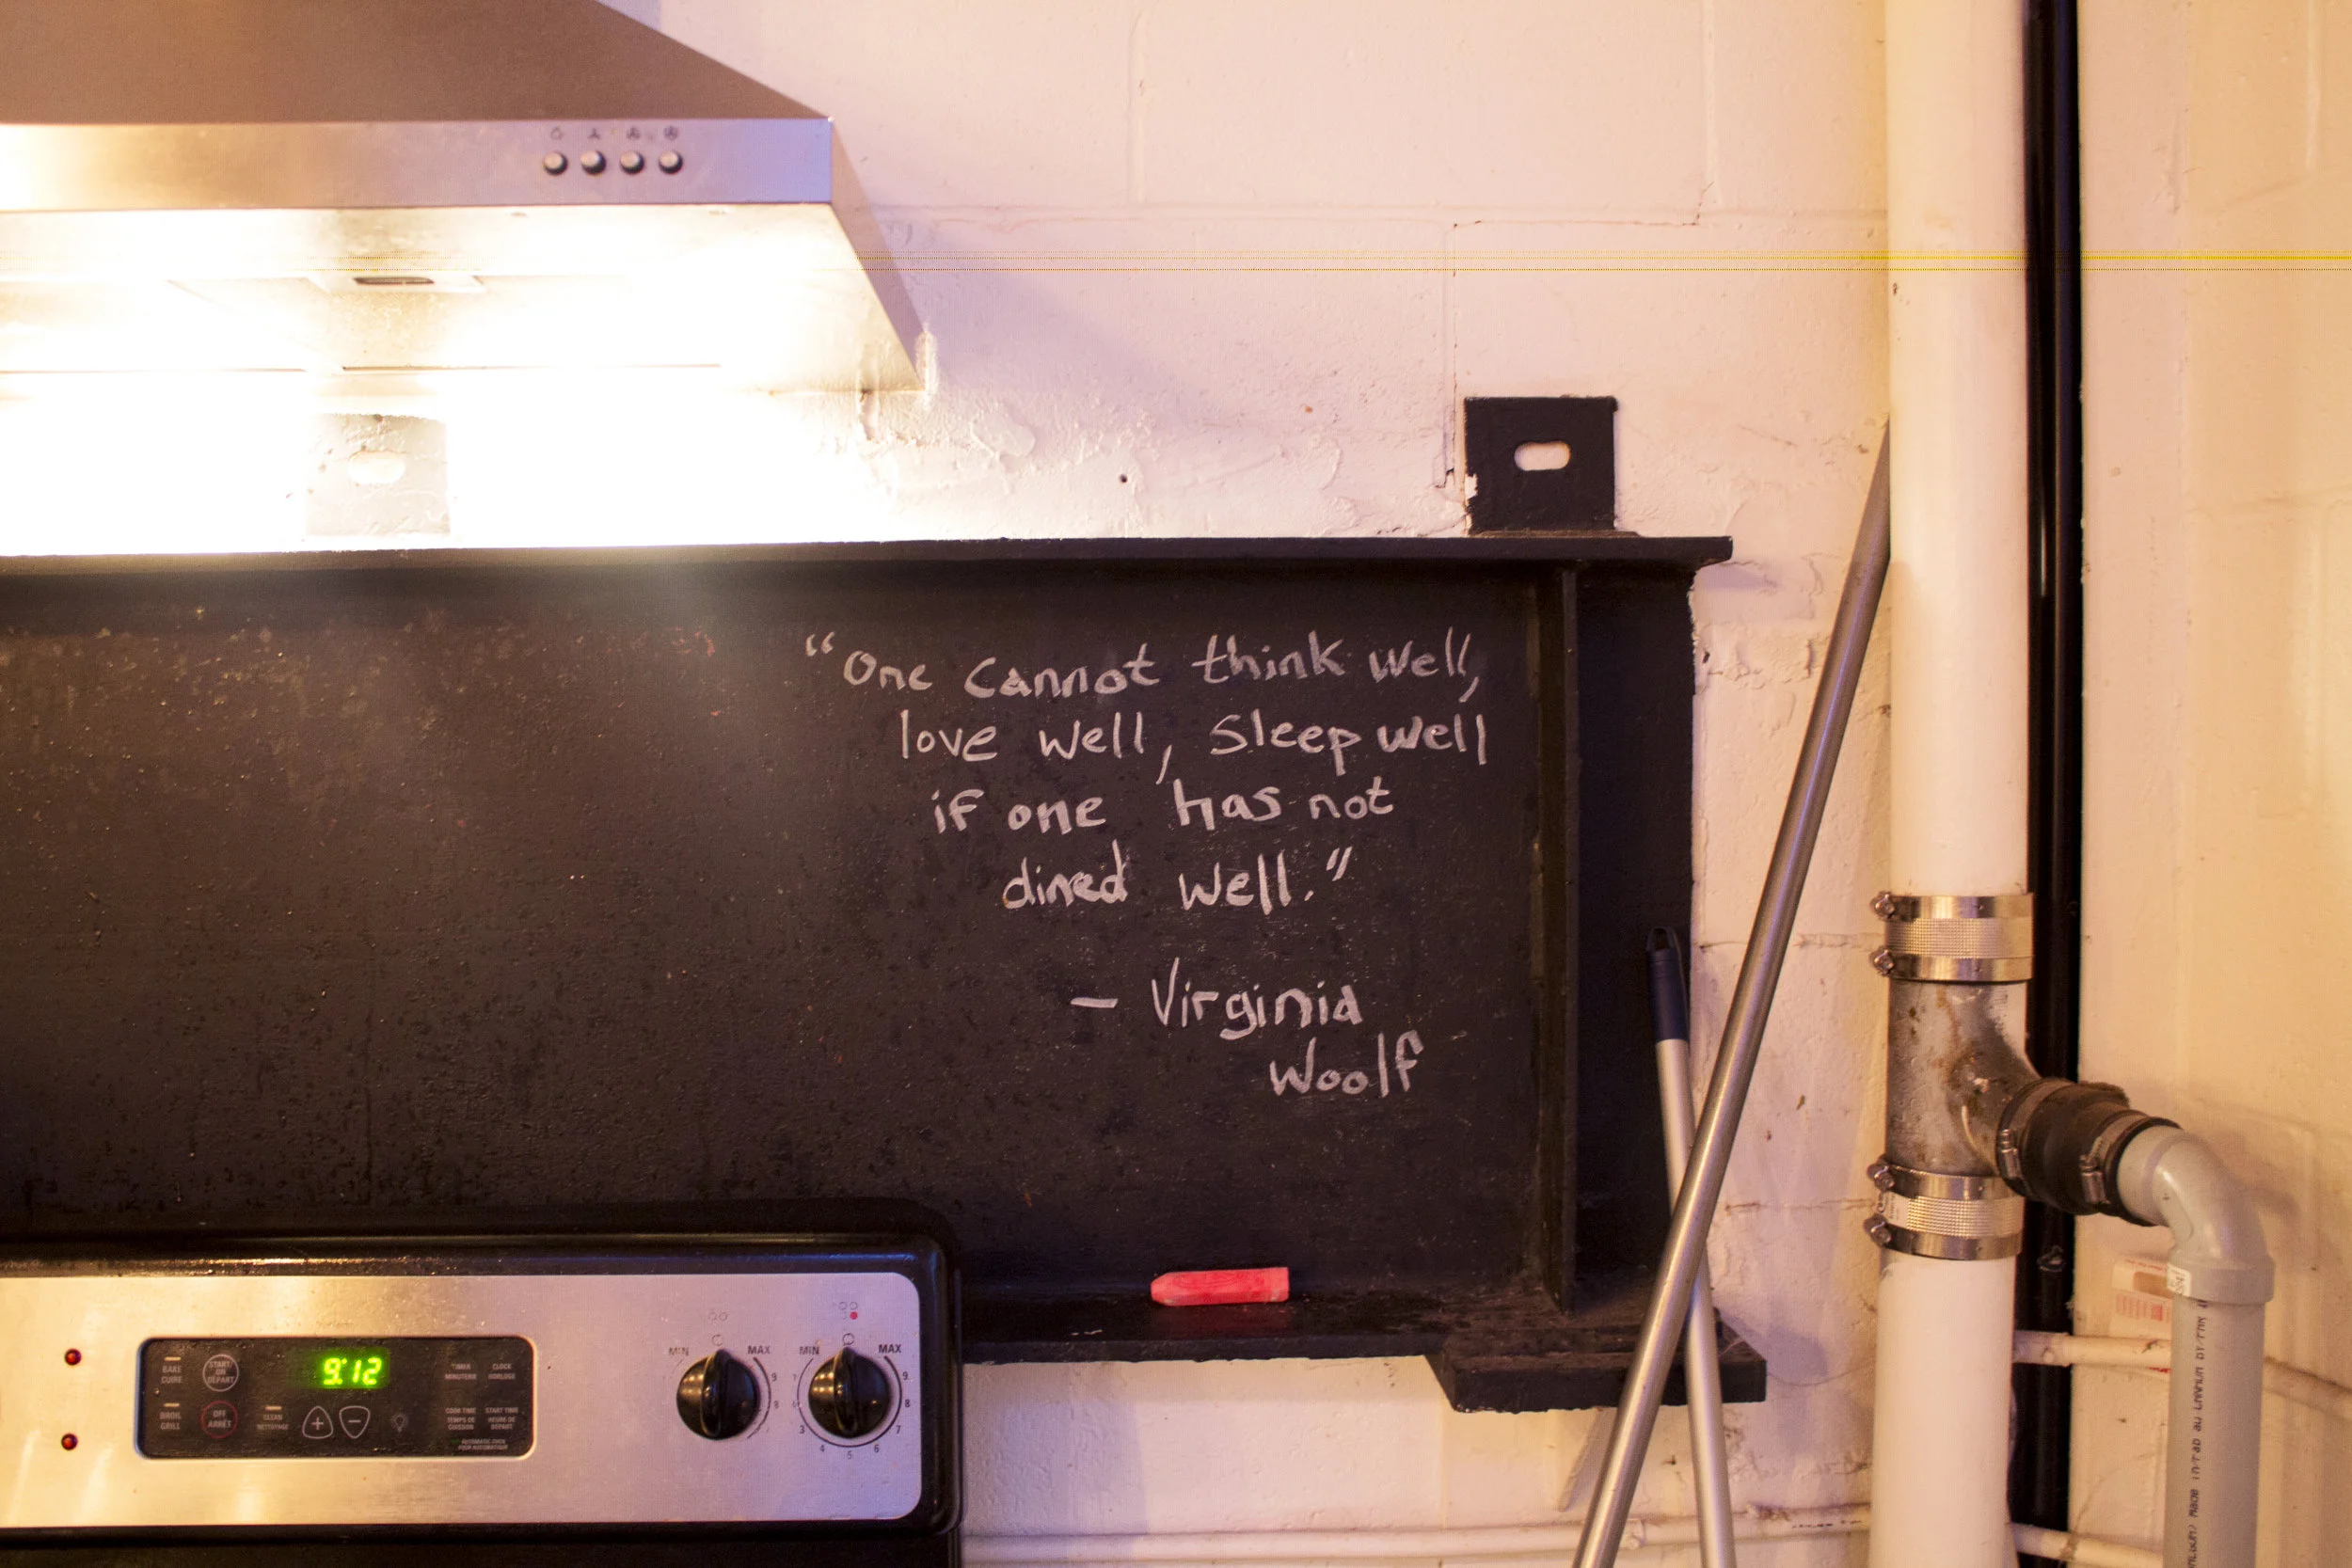 “One cannot think well,
love well, sleep well
if one has not
dined well.”
— Virginia
Woolf
MIN
MAX
9
8
MIN
MAX
9
8
7
6
5
4
3
BAKE
CUIRE
START
OU
DÉPART
9:12
TIMER
MINUTERIE
CLOCK
HORLOGE
BROIL
GRILL
OFF
ARRÊT
CLEAN
NETTOYAGE
+
−
COOK TIME
TEMPS DE
CUISSON
START TIME
HEURE DE
DÉPART